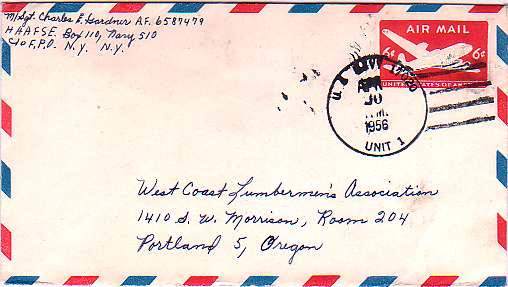 M/Sgt. Charles E. Gardner A.F. 6587479
H A A F S E. Box 110, Navy 510
c/o F.P.O. N.Y. N.Y.
AIR MAIL
6¢ 6¢
UNITED STATES OF
U.S.
APR
30
M.
1956
UNIT 1
West Coast Lumbermen's Association
1410 S. W. Morrison, Room 204
Portland 5, Oregon